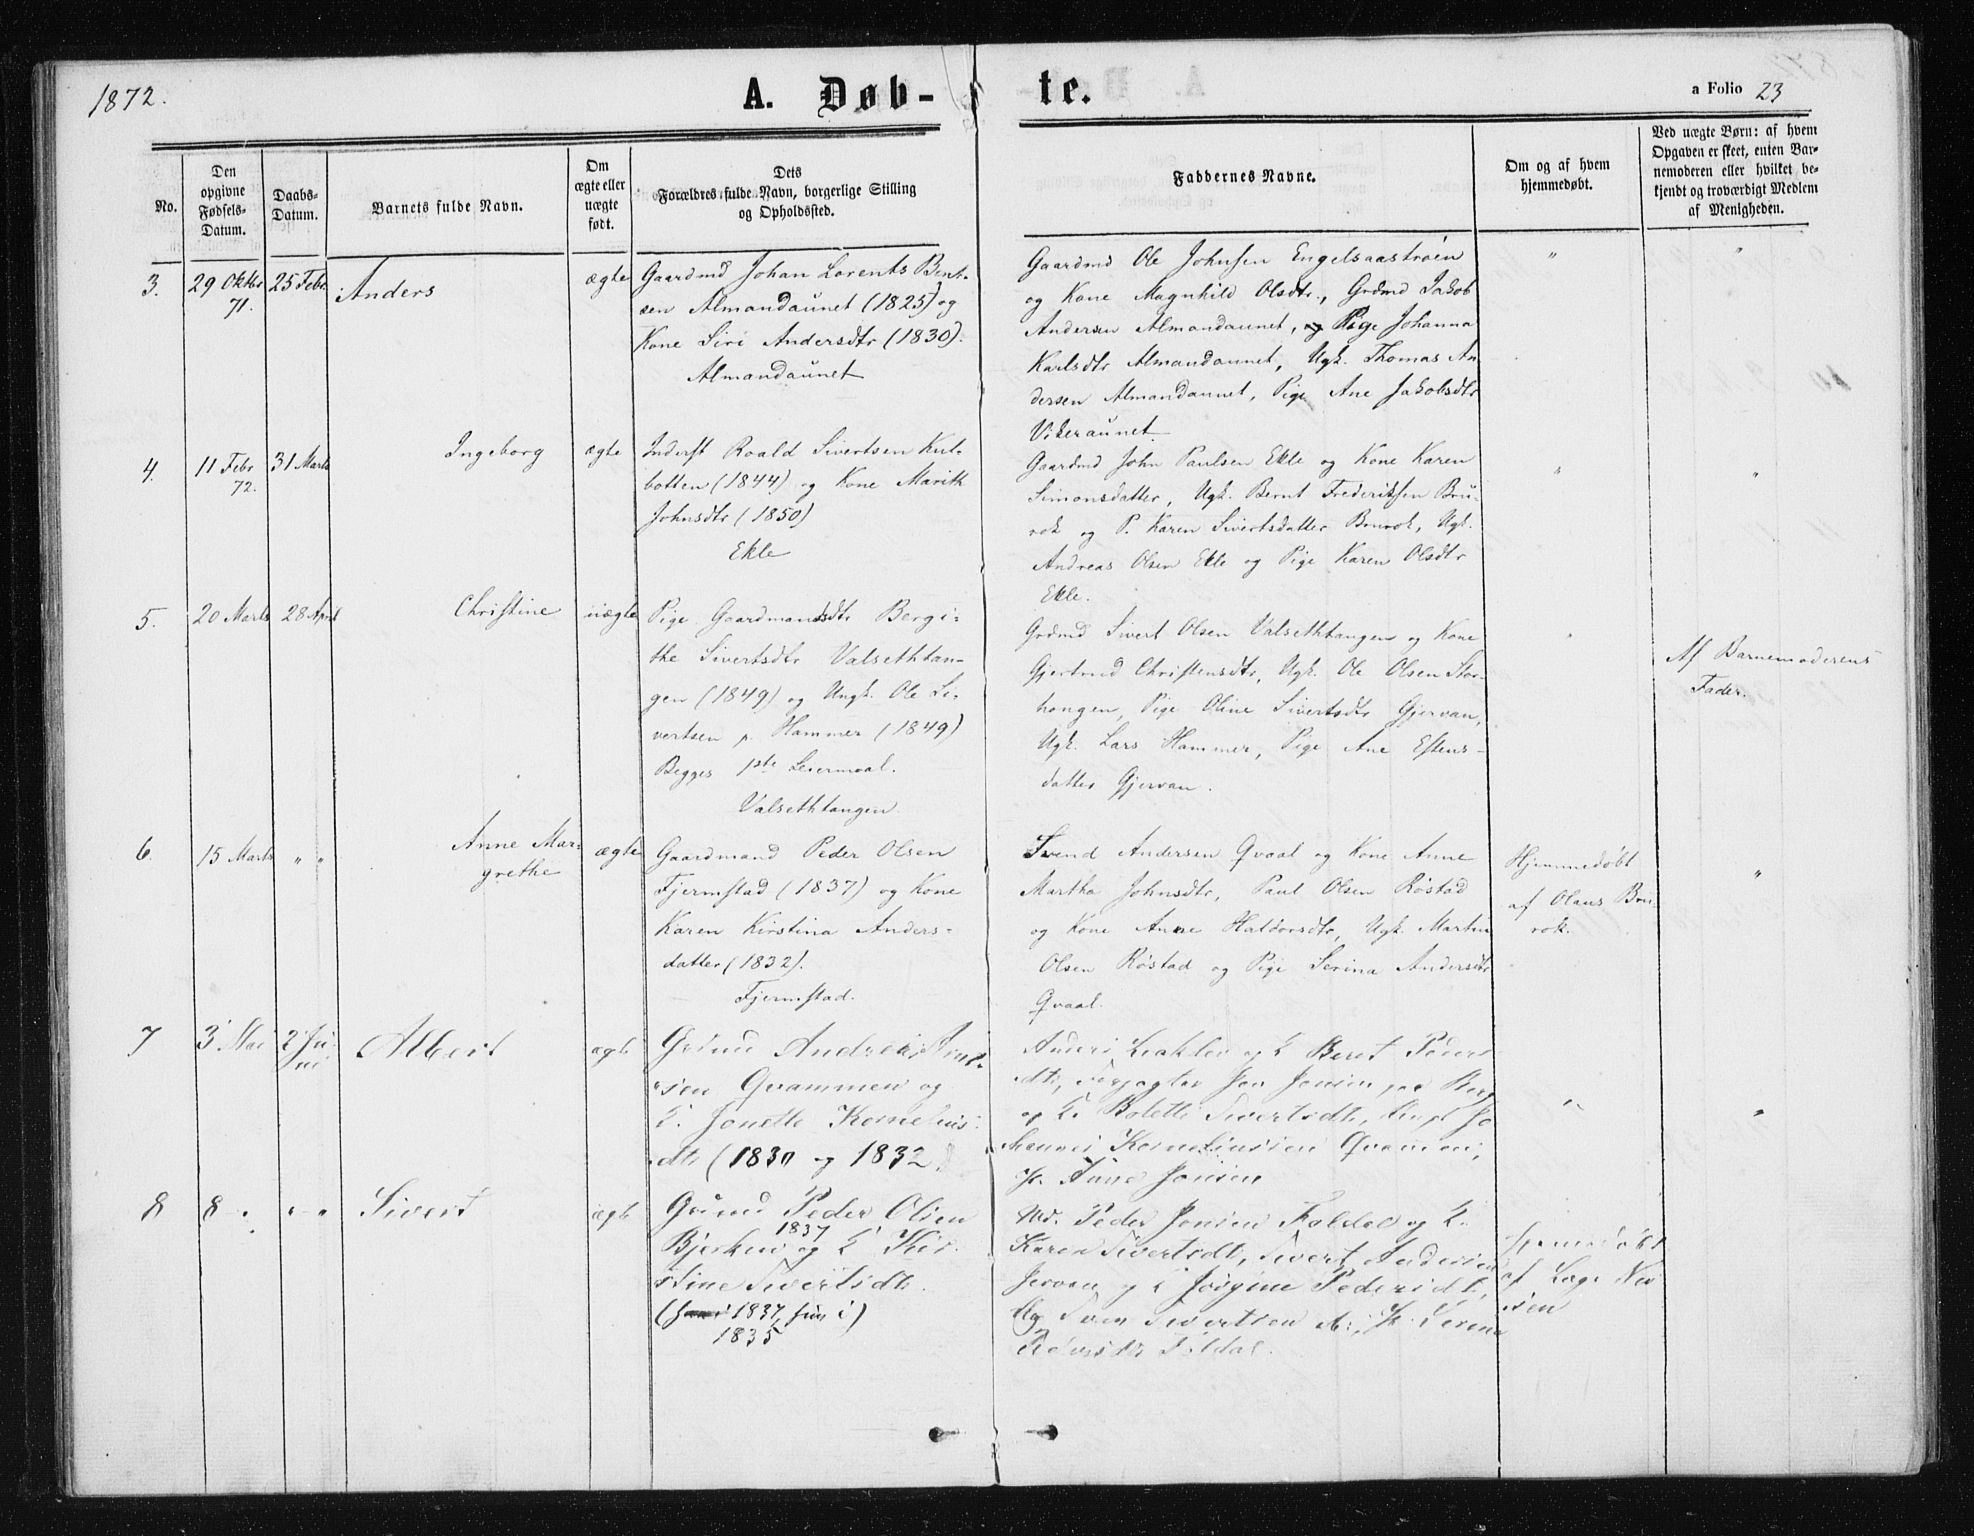 1872.
A. Døb-
te.
a Folio 23
No.
Den
opgivne
Fødsels-
Datum.
Daabs-
Datum.
Barnets fulde Navn.
Om
ægte eller
uægte
født.
Dets
Forældres fulde Navn, borgerlige Stilling
og Opholdssted.
Faddernes Navne.
Om og af hvem
hjemmedøbt.
Ved uægte Børn: af hvem
Opgaven er skeet, enten Bar-
nemoderen eller hvilket be-
kjendt og troværdigt Medlem
af Menigheden.
3.
29 Oktbr
71.
25 Febr
Anders
ægte
Gaardmd Johan Lorents Bent-
sen Almandaunet (1825) og
Kone Siri Andersdtr (1830).
Almandaunet
Gaardmd Ole Johnsen Engelsaastrøen
og Kone Magnhild Olsdtr., Grdmd Jakob
Andersen Almandaunet, og Pige Johanna
Karlsdtr Almandaunet, Ugk. Thomas An
dersen Almandaunet, Pige Ane Jakobsdtr
Vikeraunet.
"
"
4.
11 Febr
72.
31 Marts
Ingeborg
ægte
Inderst Roald Sivertsen Kul-
botten (1844) og Kone Marith
Johnsdtr (1850)
Ekle
Gaardmd John Paulsen Ekle og Kone Karen
Simonsdatter, Ugk. Bernt Frederiksen Bru-
rok og P. Karen Sivertsdatter Brurok, Ugk.
Andreas Olsen Ekle og Pige Karen Olsdtr
Ekle.
"
"
5.
20 Marts
28 April
Christine
uægte
Pige Gaardmandsdtr Bergi-
the Sivertsdtr Valsethtan-
gen (1849) og Ungk. Ole Si-
vertsen p. Hammer (1849)
Begges 1ste Leiermaal.
Valsethtangen
Grdmd Sivert Olsen Valsethtangen og Kone
Gjertrud Christensdtr, Ugk. Ole Olsen Stor-
haugen, Pige Oline Sivertsdtr Gjervan,
Ugk. Lars Hammer, Pige Ane Estens-
datter Gjervan.
"
Af Barnemoderens
Fader.
6.
15 Marts
" "
Anne Mar-
grethe
ægte
Gaardmand Peder Olsen
Fjermstad (1837) og Kone
Karen Kirstina Anders-
datter (1832).
Fjermstad.
Svend Andersen Qvaal og Kone Anne
Martha Johnsdtr, Paul Olsen Røstad
og Kone Anne Haldorsdtr, Ugk. Martin
Olsen Røstad og Pige Serina Andersdtr
Qvaal.
Hjemmedøbt
af Olaus Bru-
rok.
"
7
3 Mai
2 Ju-
ni
Albert
ægte
Grdmd Andreas
sen Qvammen og
K. Jonette Kornelius-
dtr (1830 og 1832)
Anders og K Beret Peders
dtr, Jon Jonsen paa Berg
og K. Bolette Sivertsdtr, Jo
hannes Korneliussen Qvammen,
P. Anne Jonsen
"
"
8
8 "
" "
Sivert
ægte
Grdmd Peder Olsen
1837
Bjerken og K Kir-
stine Sivertsdtr.
(1837, Juni)
1835
Md. Peder Jonsen Foldal og K.
Karen Sivertsdtr, Sivert Andersen
Jervan og K Jørgine Pedersdtr,
Ug Sven Sivertsen
Foldal.
Hjemmedøbt
af Læge
sen